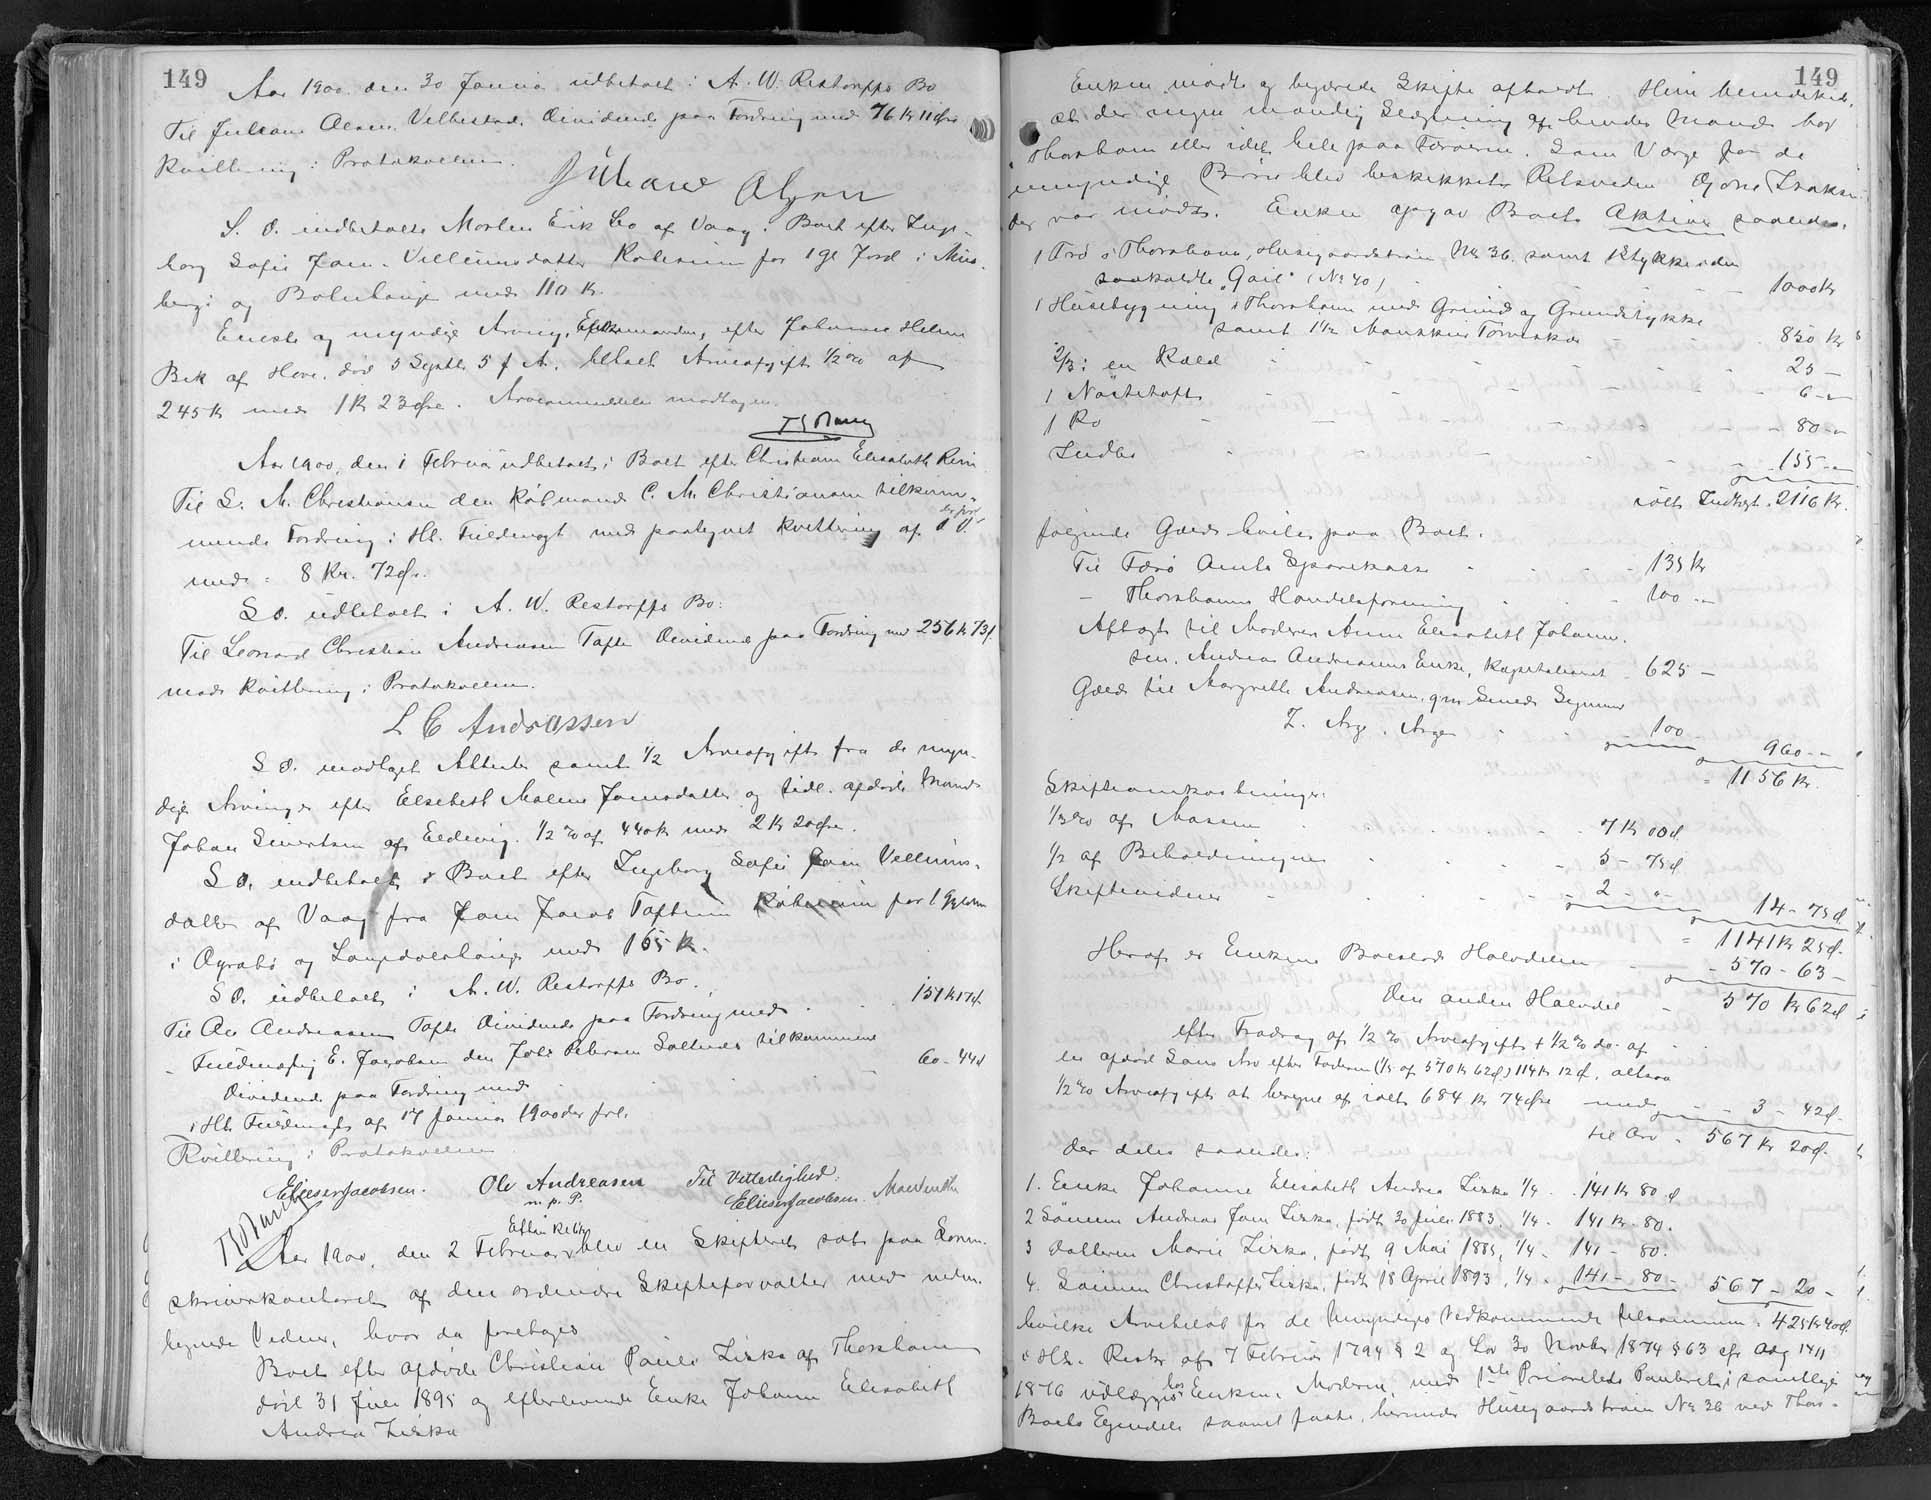 149
Aar 1900. den 30 Januar udbetalt i A. W. Restorffs Bo
Til Juliane Olsen, Velbestad, Dividende paa Fordring med 76 Kr 11 Øre
Kvittering i Protokollen.
Juliane Olsen
S. D. indbetalte Morten Erik Leo af Vaag i Boet efter Inge-
borg Sofie Joen-Villiumsdatter Købesum for 1 gl Jord i
og med 110 Kr.
Eneste og myndige Arving, Enkemanden, efter Johanne Helene
Bek af Hove, død 5 Septb. f. A. betalt Arveafgift ½ % af
245 Kr med 1 Kr 23 Øre. Arveanmeldelse modtagen.
Aar 1900, den 1 Februar udbetalt i Boet efter Christiane Elisabeth
Til S. M. Christiansen den Købmand C. M. Christiansen tilkom-
mende Fordring i Hl. Fuldmagt med paategnet Kvittering af
med - 8 Kr. 72 Ø.
S. D. udbetalt i A. W. Restorffs Bo:
Til Leonard Christian Andreasen Tofte Dividende paa Fordring med 256 Kr 73 Ø.
mod Kvittering i Protokollen.
L C Andreassen
S. D. modtaget Attester samt ½ Arveafgift fra de myn-
dige Arvinger efter Elsebeth Malene Joensdatter og tidl. afdøde Mand
Johan Sivertsen af Eldevig. ½ % af 440 Kr med 2 Kr 20 Øre.
S. D. indbetalt i Boet efter Ingeborg Sofie Joen Villiums-
datter af Vaag fra Joen Jacob Toftum Købesum for 1
i og med 165 Kr.
S. D. udbetalt i A. W. Restorffs Bo.
Til Ole Andreasen Tofte Dividende paa Fordring med - 151 Kr 17 Ø.
- Fuldmægtig E. Jacobsen den Petersen tilkommende
Dividende paa Fordring med 60 - 44 Ø
i Hl. Fuldmagt af 17 Januar 1900
Kvittering i Protokollen
Elieser Jacobsen. Ole Andreasen Til Vitterlighed:
m. p. P. Elieser Jacobsen.
Aar 1900, den 2 Februar Eftm Kl blev en Skifteret sat paa Soren-
skriverkontoret af den ordinære Skifteforvalter med neden-
tegnede Vidner, hvor da foretages
Boet efter afdøde Christian Pauli Ziska af Thorshavn
død 31 Juli 1895 og efterlevende Enke Johanne Elisabeth
Andrea Ziska
149
Enken mødte og begjærede Skifte afholdt. Hun bemærkede,
at der ingen mandlig Slægtning af hendes Mand bor
i Thorshavn eller i det hele paa Færøerne. Som Værge for de
umyndige Børn blev beskikket Retsvidne Isaksen
der var mødt. Enken opgav Boets Aktiver saaledes.
1 Trø i Thorshavn, Husegaardstrøin, Nr 36. samt 1 Stykke i den
saakaldte "Gail" (Nr 40) - 1000 Kr
1 Husebygning i Thorshavn med Grund og Grundstykke
samt 1½ Mandskurs Tørveskær - 850 Kr
2/3 i en Kæld - 25 -
1 Nøstetoft - 6 -
1 Ko - 80 -
Indbo - 155 -
ialt Indtægt - 2116 Kr.
følgende Gæld hviler paa Boet.
Til Færø Amts Sparekasse - 135 Kr
- Thorshavns Handelsforening - 100 -
Aftægt til Moderen Anne Elisabeth Johann-
sen, Andreas Andreasens Enke, kapitaliseret - 625 -
Gæld til Margrethe Andreasen, Smed
Z. Arge, Arge - 100 - 960 -
= 1156 Kr.
Skifteomkostninger:
1/3 % af Massen - 7 Kr 00 Ø.
½ af Beholdningen - 5 - 75 Ø
Skiftevidner - 2 - " - 14 - 75 Ø
= 1141 Kr 25 Ø.
Heraf er Enkens Boeslod Halvdelen - 570 - 63 -
Den anden Halvdel - 570 Kr 62 Ø
efter Fradrag af ½ % Arveafgift + ½ % do. af
en afdød Søns Arv efter Faderen (1/5 af 570 Kr 62 Ø) 114 Kr 12 Ø, altsaa
½ % Arveafgift at beregne af ialt 684 Kr 74 Øre med - 3 - 42 Ø.
til Arv - 567 Kr 20 Ø.
der deles saaledes:
1. Enke Johanne Elisabeth Andrea Ziska ¼ - 141 Kr 80 Ø
2 Sønnen Andreas Joen Ziska, født 30 Juli 1883. ¼ - 141 Kr 80.
3 Datteren Marie Ziska, født 9 Mai 1885, ¼ - 141 - 80.
4. Sønnen Christoffer Ziska, født 18 April 1893, ¼ - 141 - 80 - 567 - 20 -
hvilke Arvebeløb for de Umyndiges Vedkommende tilsammen - 425 Kr 40 Ø.
i Hl. Reskr. af 7 Februar 1794 § 2 og Lov 30 Novbr 1874 § 63 cfr 14/11
1876 udlægges hos Enken, Moderen, med 1ste Prioritets Panteret i samtlige
Boets Ejendele saavel faste, herunder Husegaardstrøin Nr 36 ved Thors-